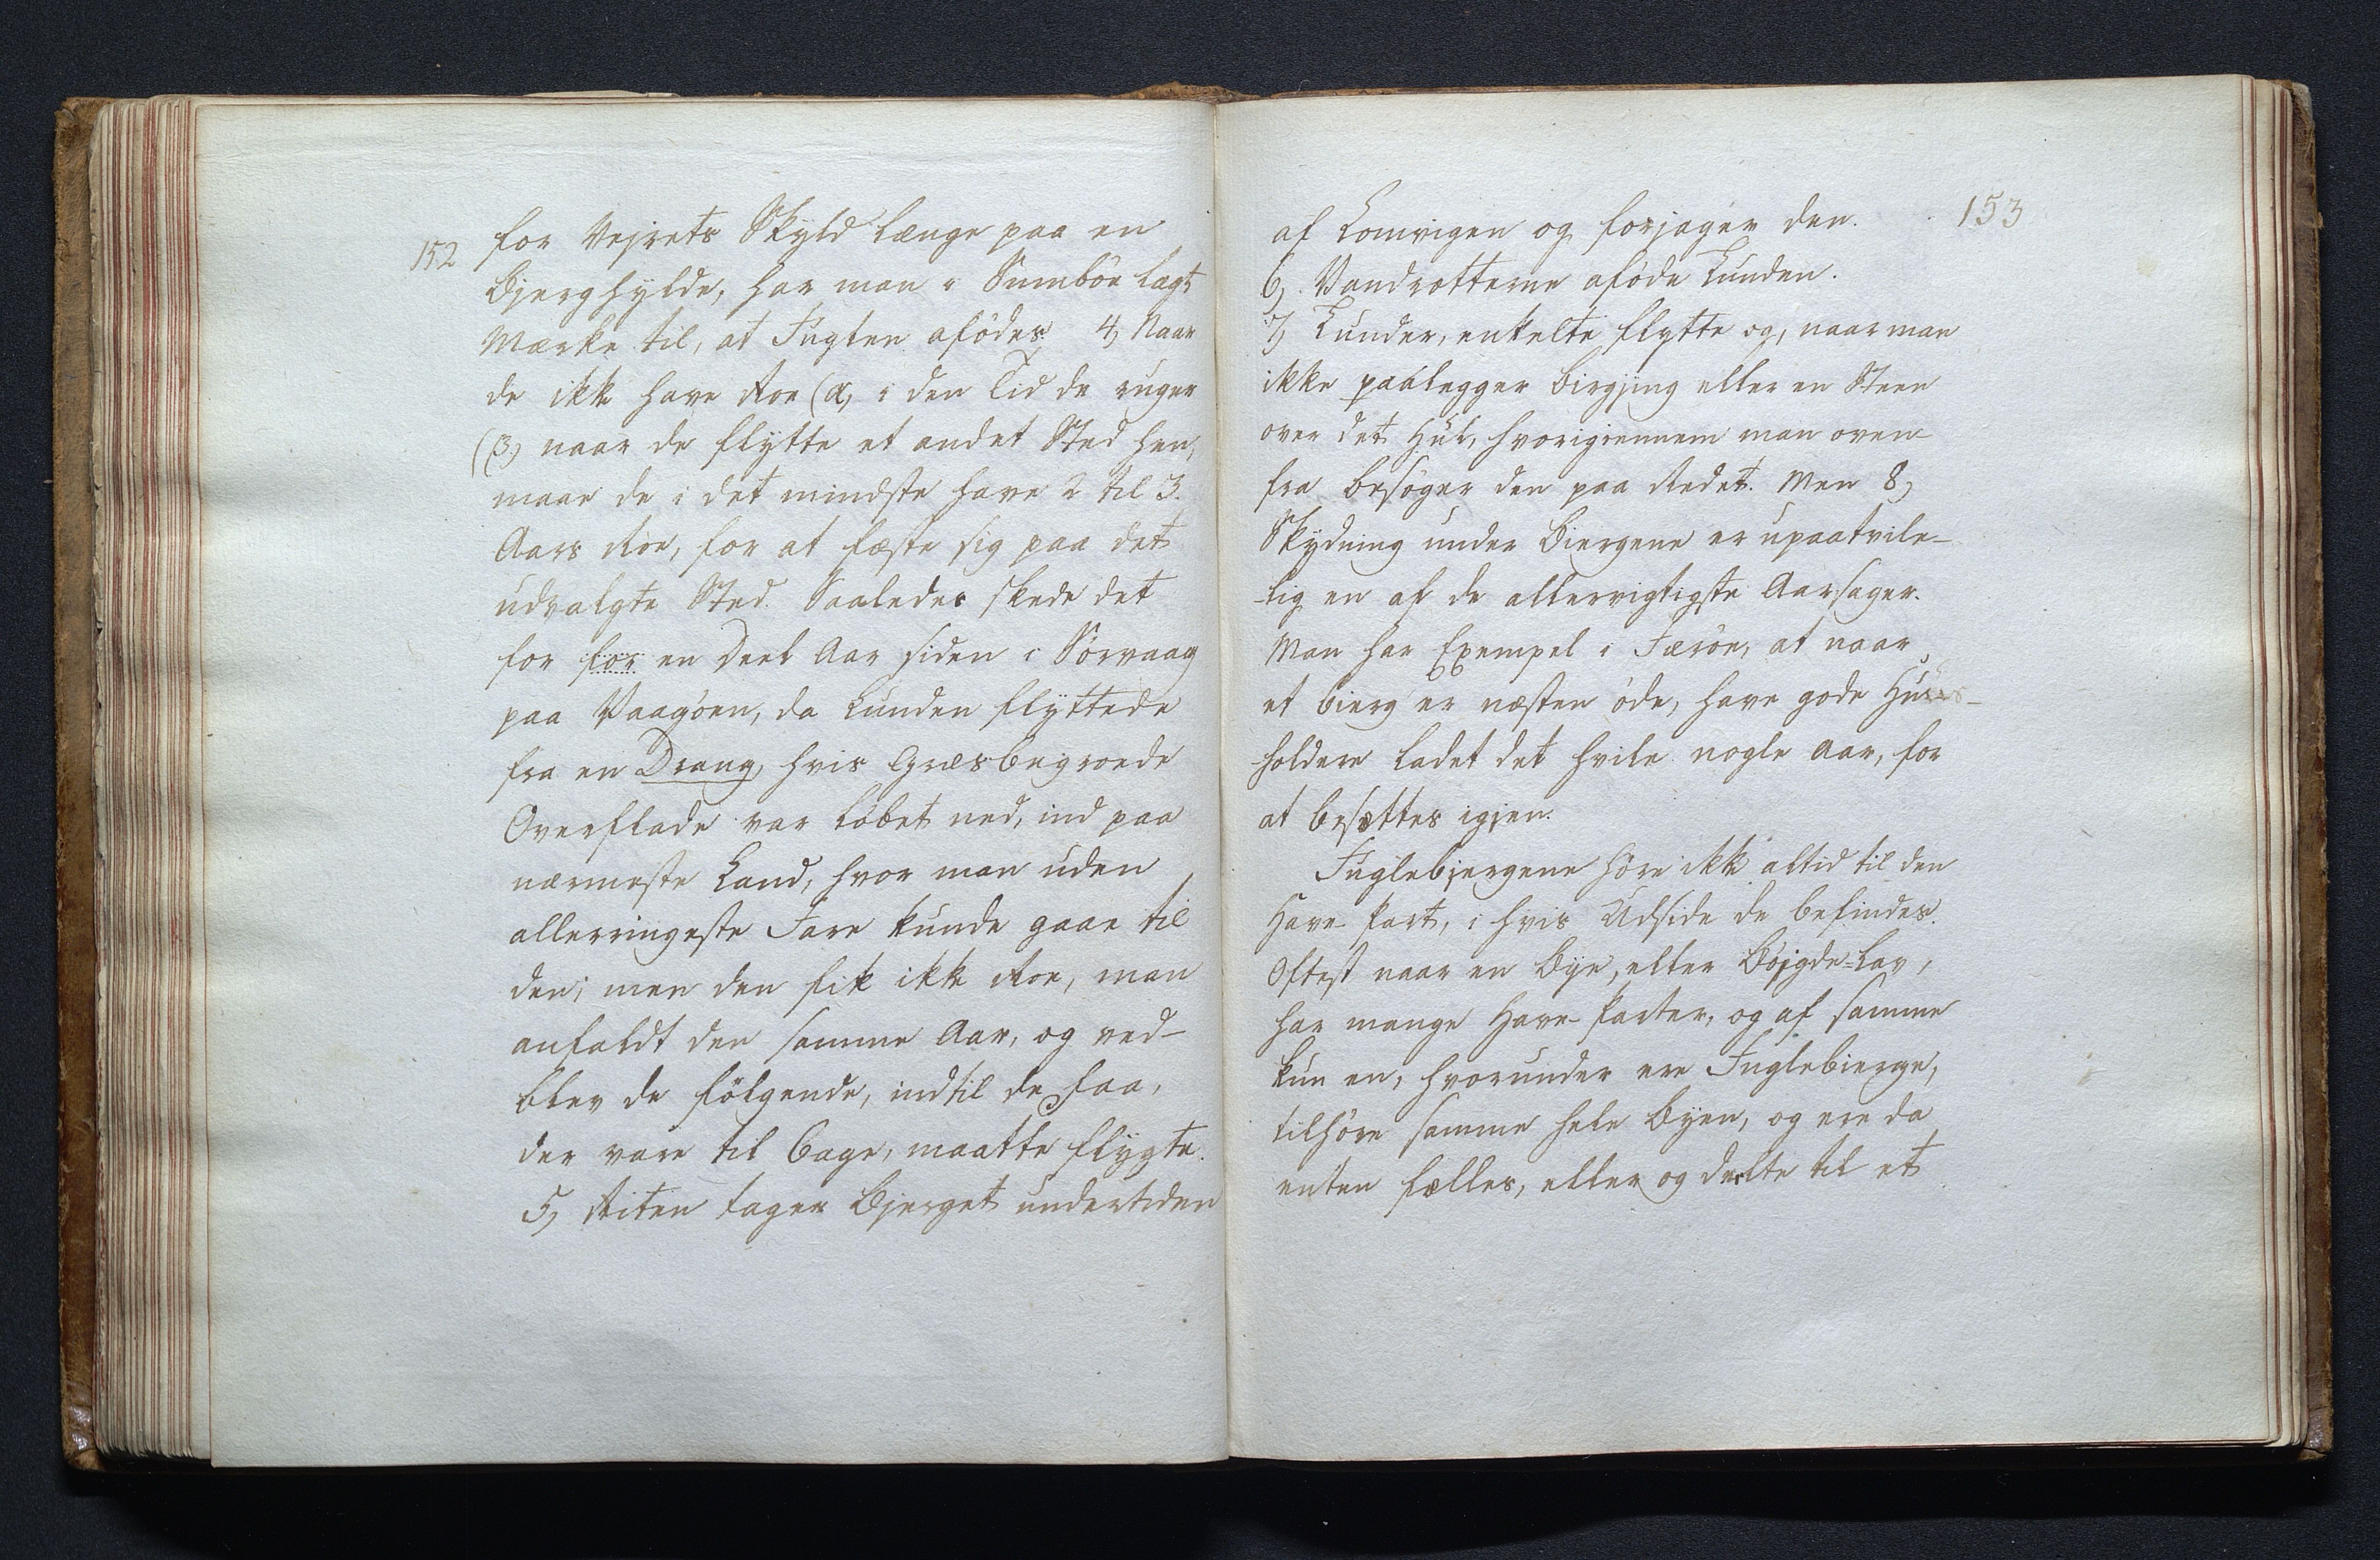 152
for Vejrets Skyld længe paa en
Bjerghylde, har man i Sumbøe lagt
Mærke til, at Fuglen afødes. 4, Naar
de ikke have Roe (α, i den Tid de ruger
(β, naar de flytte et andet Sted hen,
maae de i det mindste have 2 til 3.
Aars Roe, for at fæste sig paa det
udvalgte Sted. Saaledes skede det
for for en Deel Aar siden i Sørvaag
paa Vaagøen, da Lunden flyttede
fra en Drang, hvis Græsbegroede
Overflade var løbet ned, ind paa
nærmeste Land, hvor man uden
allerringeste Fare kunde gaae til
den; men den fik ikke Roe, man
anfaldt den samme Aar, og ved-
blev de følgende, indtil de faa,
der vare til bage, maatte flygte.
5, Riten tager Bjerget undertiden
153
af Lomvigen og forjager den.
6, Vandrotterne aføde Lunden.
7, Lunder, enkelte flytte og, naar man
ikke paalegger Birgjing eller en Steen
over det Hul, hvorigiennem man oven-
fra besøger den paa Redet. Men 8,
Skydning under Biergene er upaatvile-
-lig en af de allervigtigste Aarsager.
Man har Exempel i Færøe, at naar
et Bierg er næsten øde, have gode Huus-
holdere ladet det hvile nogle Aar, for
at besættes igjen.
Fuglebjergene høre ikke altid til den
Have-Part, i hvis Udside de befindes.
Oftest naar en Bye, eller Bøjgde-Lav,
har mange Have-Parter, og af samme
kun en, hvorunder ere Fuglebierge,
tilhøre samme hele Byen, og ere da
enten fælles, eller og deelte til et